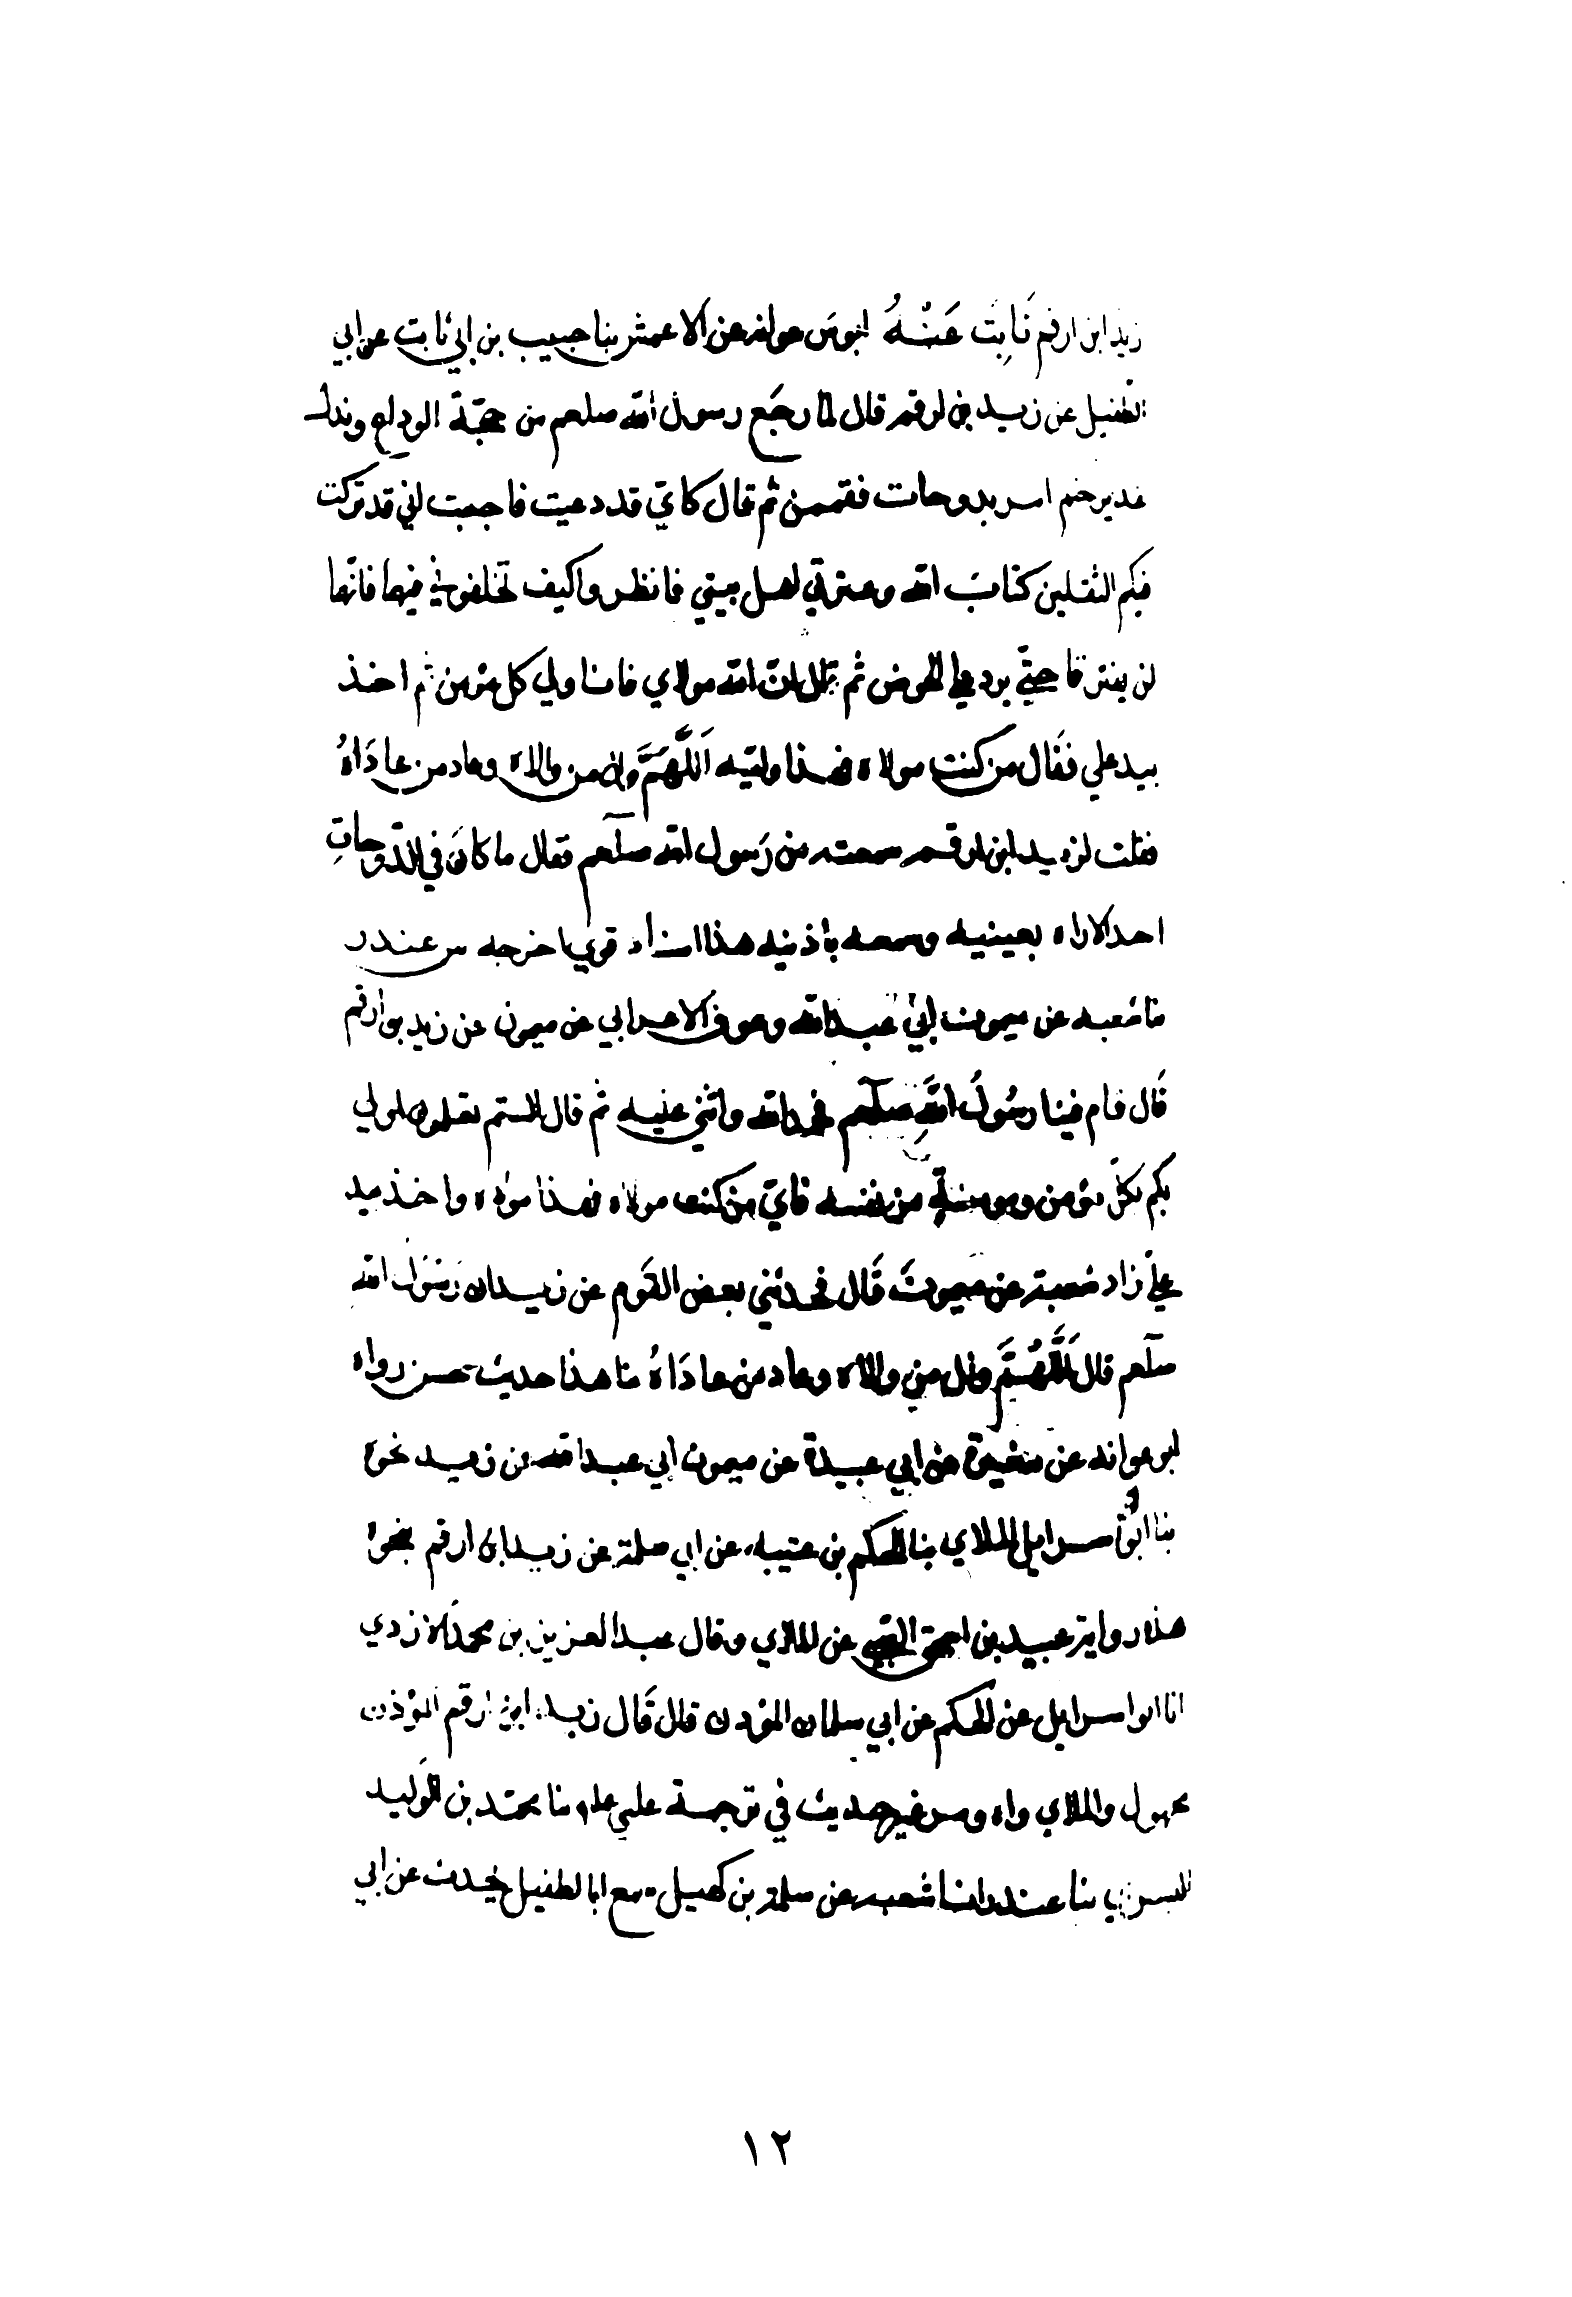 زيد ابن ارقم ثَابِت عَنْهُ ابوس عوانه عن الاعمش بنا حبيب بن ابي ثابت عن ابي
الطفيل عن زيد بن ارقم قال لما رجَع رسول الله صلعم من حجّة الوداع ونزل
غدير خم امر بدوحات فقممن ثم قال كاني قد دعيت فاجبت اني قد تركت
فيكم الثقلين كتاب الله وعترتي اهل بيتي فانظروا كيف تخلفوني فيهما فانّهما
لن يفترقا حتّي يردا علي الحوض ثم قال انّ الله مولاي فانا ولي كل مؤمن ثم اخذ
بيد علي فقال من كنت مولاه فهذا وليّه اَللَّهمَّ وال من والاه وعاد من عادَاهُ
فقلت لزيد ابن ارقم سمعته من رَسول الله صلعم فقال ما كانَ في الدّوحاتِ
احد الا راه بعينيه وسمعه باذنيه هذا اسناد قوي اخرجه س عن غندر
نا شعبه عن ميمون ابي عبد الله وعوف الاعرابي عن ميمون عن زيد بن ارقم
قَال قام فينا رسُولُ اللهِ صلعم فحمد الله واثني عليه ثم قال الستم تعلمون اني اولي
بكم بكلّ مؤمن ومومنةٍ من نفسه فانيّ من كنت مولاه فهذا مولاه واخذ بيد
عليّ زاد شعبة عن ميمونَ قَال فحدثني بعض القَوم عن زيد ان رسُول الله
صلعم قال اَللَّهُمَّ وال من والاه وعاد من عادَاهُ نا هذا حديث حسن رواه
ابو عوانه عن مغيرة عن ابي عبيدة عن ميمون ابي عبد الله عن زيد نحوه
بنا ابو اسرايل الملاي بنا الحكم بن عتيبه عن ابي سلمة عن زيد ابن ارقم بنحوه
هذه رواية عبيد بن اسحق عن الملاي وقال عبد العزيز بن محمد الازدي
انا ابو اسرايل عن الحكم عن ابي سلمان المؤذن قال قَال زيد ابن ارقم المؤذن
مجهول والملاي واه ومن غير حديث في ترجمة علي نا محمّد بن الوَليد
البسري بنا غندر انا شعبه عن سلمة بن كهيل سمع ابا الطفيل يحدث عن ابي
١٢